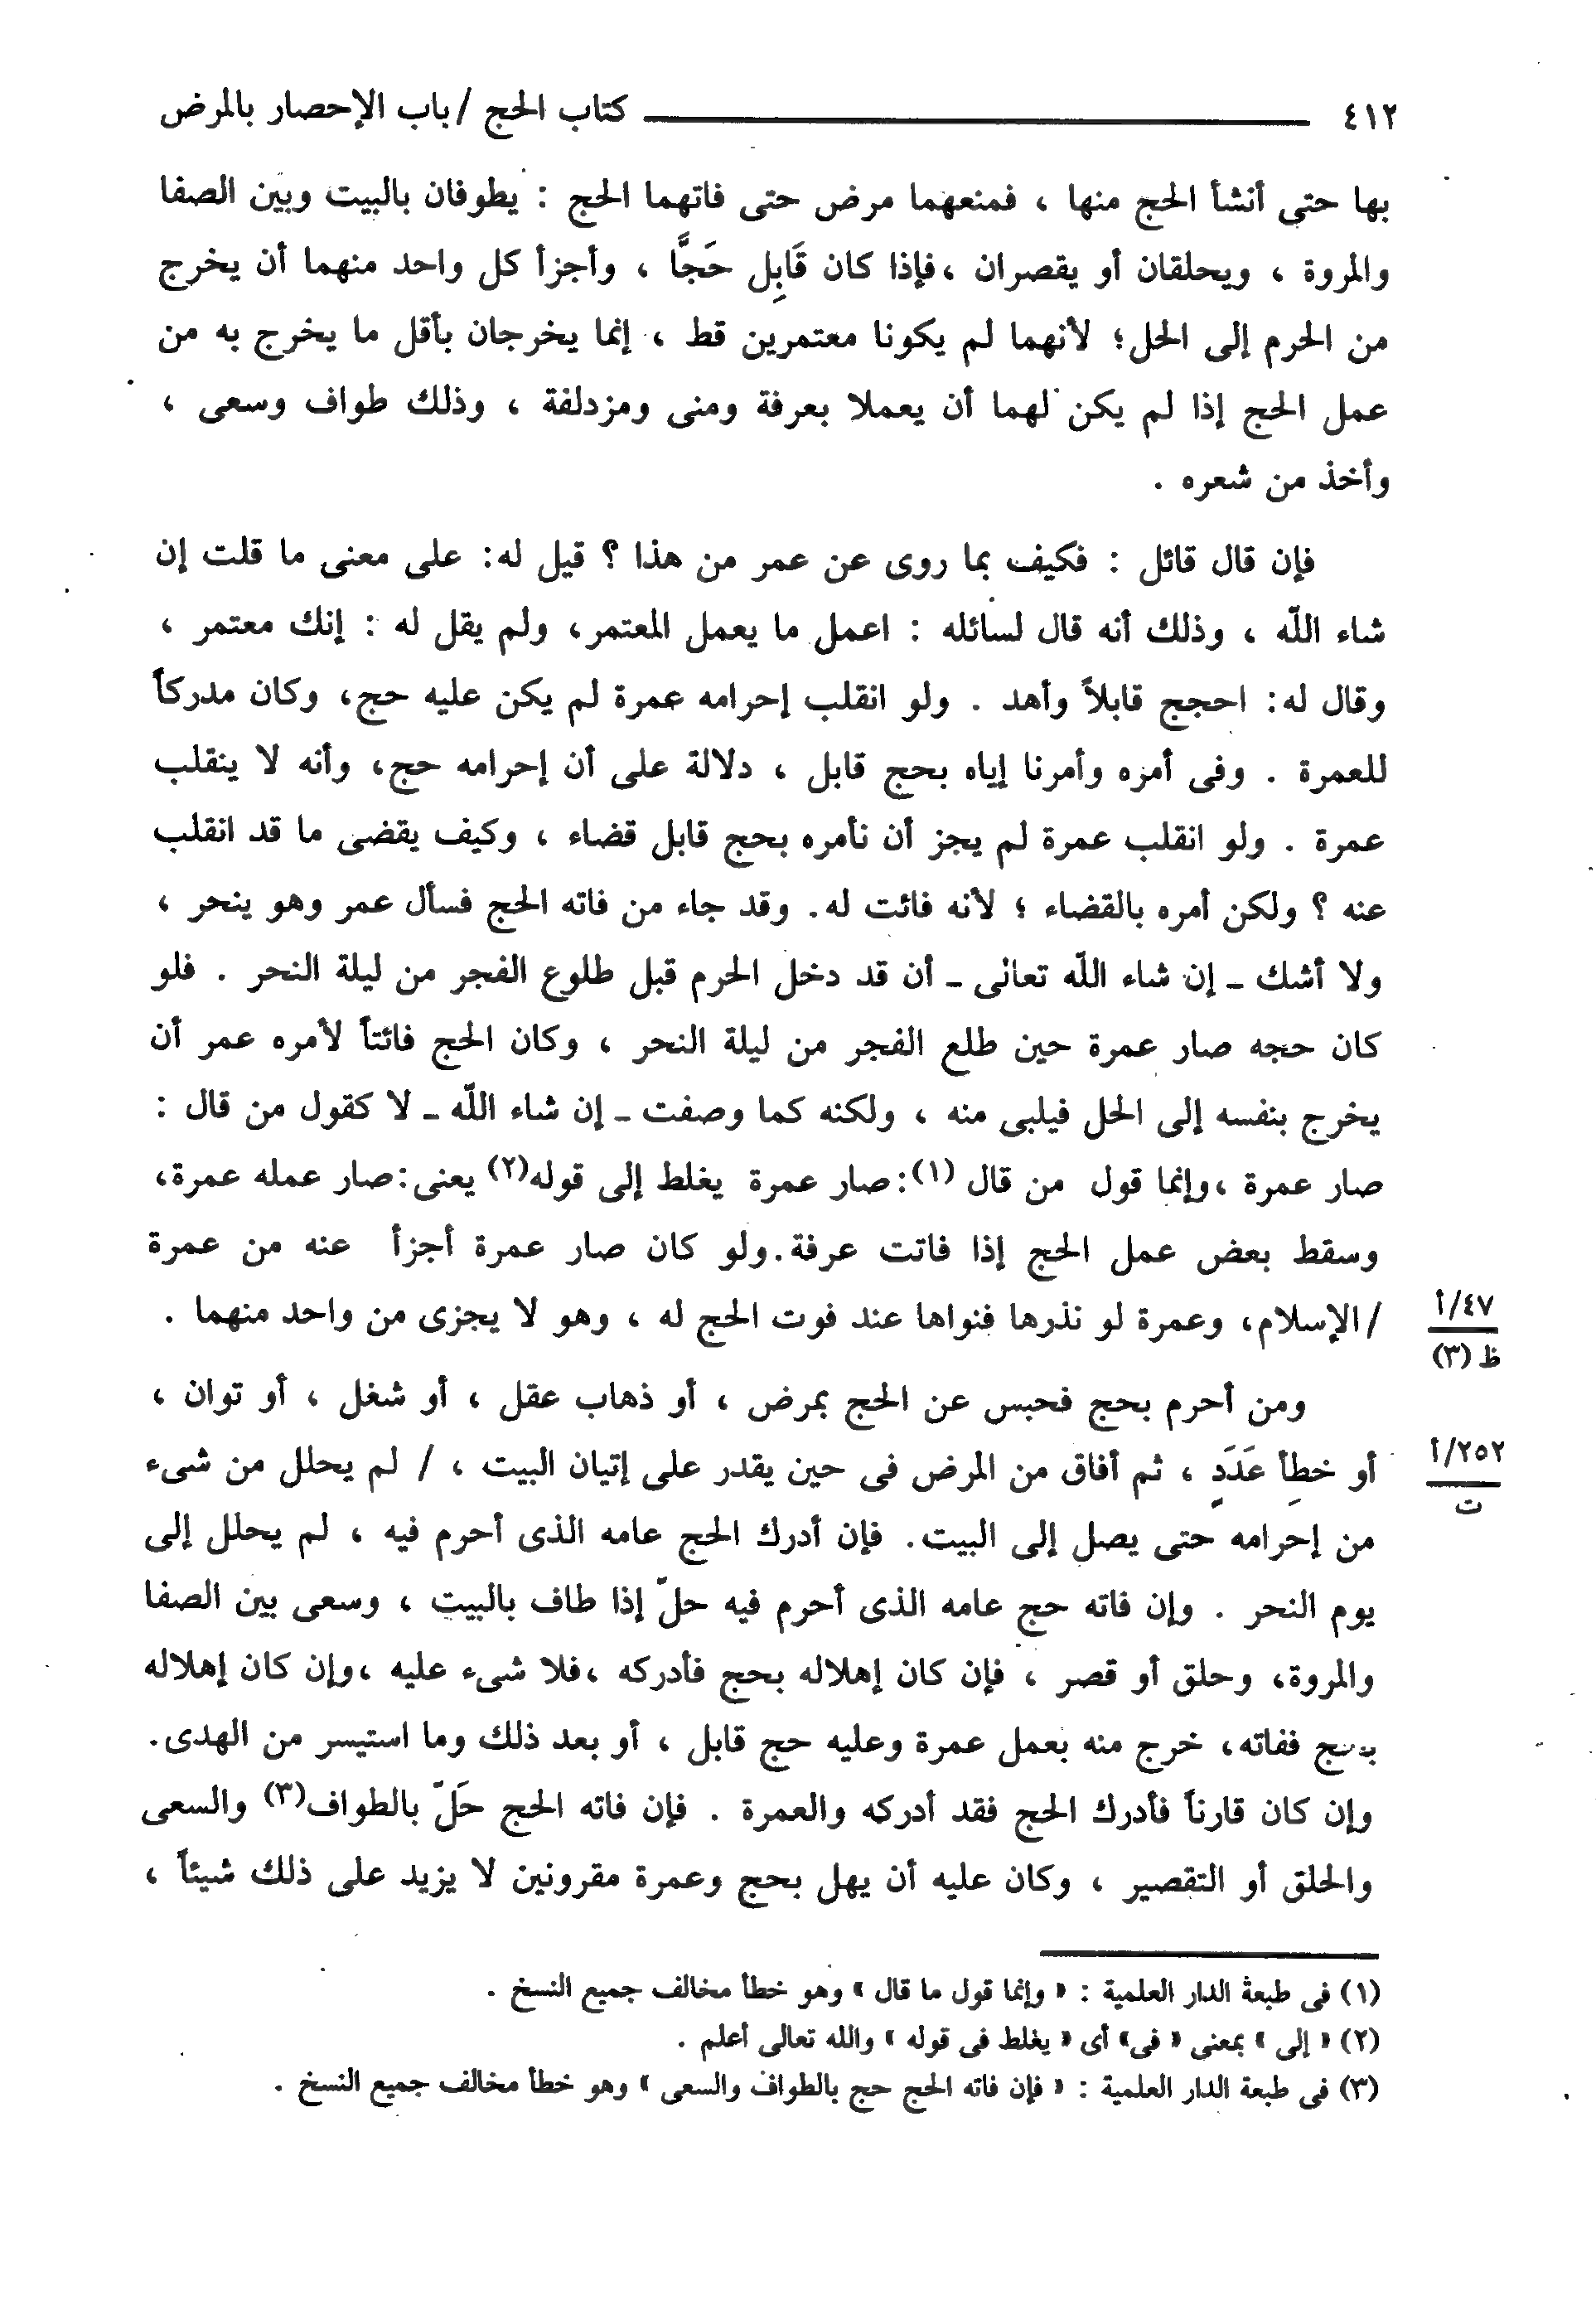 ٤١٢ كتاب الحج /باب الإحصار بالمرض
بها حتى أنشأ الحج منها ، فمنعهما مرض حتى فاتهما الحج : يطوفان بالبيت وبين الصفا
والمروة ، ويحلقان أو يقصران ،فإذا كان قَابِل حَجَّا ، وأجزأ كل واحد منهما أن يخرج
من الحرم إلى الحل؛ لأنهما لم يكونا معتمرين قط ، إنما يخرجان بأقل ما يخرج به من
عمل الحج إذا لم يكن لهما أن يعملا بعرفة ومنى ومزدلفة ، وذلك طواف وسعى ،
وأخذ من شعره .
فإن قال قائل : فكيف بما روى عن عمر من هذا ؟ قيل له: على معنى ما قلت إن
شاء اللّه ، وذلك أنه قال لسائله : اعمل ما يعمل المعتمر، ولم يقل له : إنك معتمر ،
وقال له: احجج قابلاً وأهد . ولو انقلب إحرامه عمرة لم يكن عليه حج، وكان مدركاً
للعمرة . وفى أمره وأمرنا إياه بحج قابل ، دلالة على أن إحرامه حج، وأنه لا ينقلب
عمرة . ولو انقلب عمرة لم يجز أن نأمره بحج قابل قضاء ، وكيف يقضى ما قد انقلب
عنه ؟ ولكن أمره بالقضاء ؛ لأنه فائت له. وقد جاء من فاته الحج فسأل عمر وهو ينحر ،
ولا أشك ـ إن شاء اللّه تعالى ـ أن قد دخل الحرم قبل طلوع الفجر من ليلة النحر . فلو
كان حجه صار عمرة حين طلع الفجر من ليلة النحر ، وكان الحج فائتاً لأمره عمر أن
يخرج بنفسه إلى الحل فيلبى منه ، ولكنه كما وصفت ـ إن شاء اللّه ـ لا كقول من قال :
صار عمرة ،وإنما قول من قال (١):صار عمرة يغلط إلى قوله(٢) يعنى:صار عمله عمرة،
وسقط بعض عمل الحج إذا فاتت عرفة.ولو كان صار عمرة أجزأ عنه من عمرة
/الإسلام، وعمرة لو نذرها فنواها عند فوت الحج له ، وهو لا يجزى من واحد منهما .
٤٧/أ
ظ (٣)
ومن أحرم بحج فحبس عن الحج بمرض ، أو ذهاب عقل ، أو شغل ، أو توان ،
أو خطأِ عَدَدٍ ، ثم أفاق من المرض فى حين يقدر على إتيان البيت ، / لم يحلل من شىء
٢٥٢/أ
ت
من إحرامه حتى يصل إلى البيت. فإن أدرك الحج عامه الذى أحرم فيه ، لم يحلل إلى
يوم النحر . وإن فاته حج عامه الذى أحرم فيه حلّ إذا طاف بالبيت ، وسعى بين الصفا
والمروة، وحلق أو قصر ، فإن كان إهلاله بحج فأدركه ،فلا شىء عليه ،وإن كان إهلاله
بحج ففاته، خرج منه بعمل عمرة وعليه حج قابل ، أو بعد ذلك وما استيسر من الهدى.
وإن كان قارناً فأدرك الحج فقد أدركه والعمرة . فإن فاته الحج حَلّ بالطواف(٣) والسعى
والحلق أو التقصير ، وكان عليه أن يهل بحج وعمرة مقرونين لا يزيد على ذلك شيئاً ،
(١) فى طبعة الدار العلمية : « وإنما قول ما قال » وهو خطأ مخالف جميع النسخ .
(٢) « إلى » بمعنى « فى» أى « يغلط فى قوله » والله تعالى أعلم .
(٣) فى طبعة الدار العلمية : « فإن فاته الحج حج بالطواف والسعى » وهو خطأ مخالف جميع النسخ .